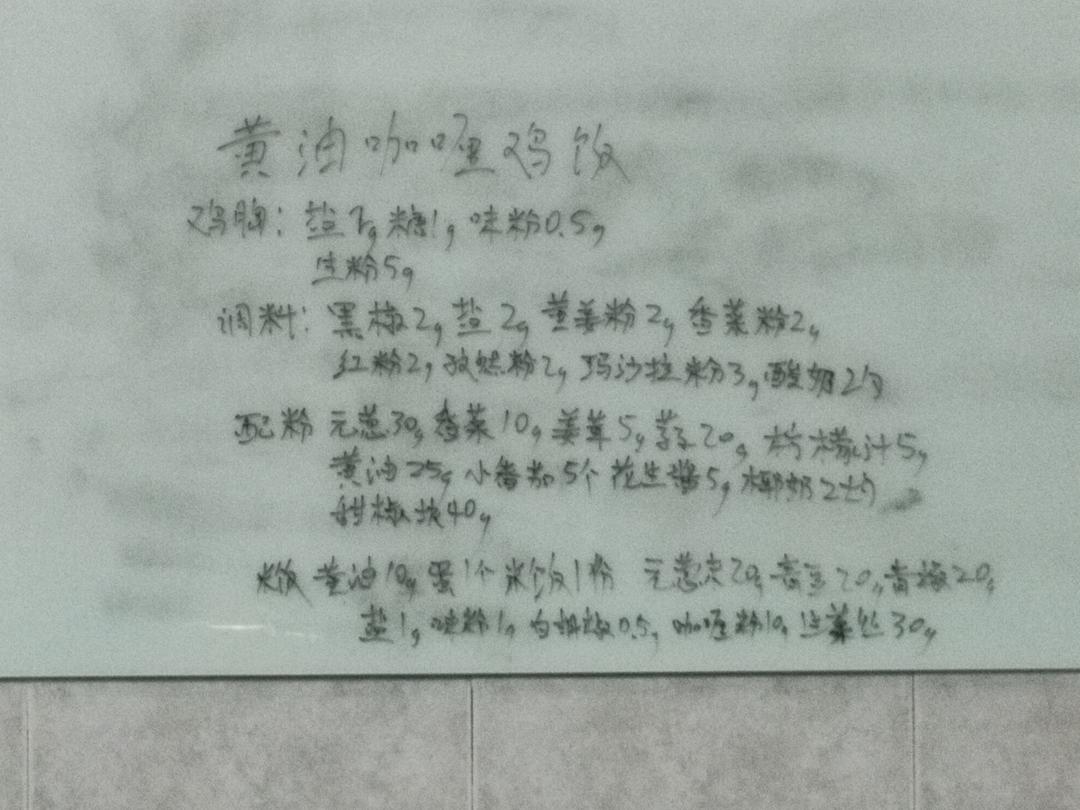 黄油咖喱鸡饭
鸡胸: 盐 g 糖1g 味粉0.5g
生粉5g
调料: 黑椒2g 盐2g 黄姜粉2g 香菜粉2g
红粉2g 孜然粉2g 玛沙拉粉3g 酸奶2勺
配粉 元葱30g 香菜10g 姜茸5g 20g 柠檬汁5g
黄油25g 小番茄5个 花生酱5g 椰奶2大勺
甜椒块40g
米饭 黄油10g 蛋1个 米饭1份 元葱 20g 20g 青椒20g
盐1g 味粉1g 白胡椒0.5g 咖喱粉10g 生菜丝30g